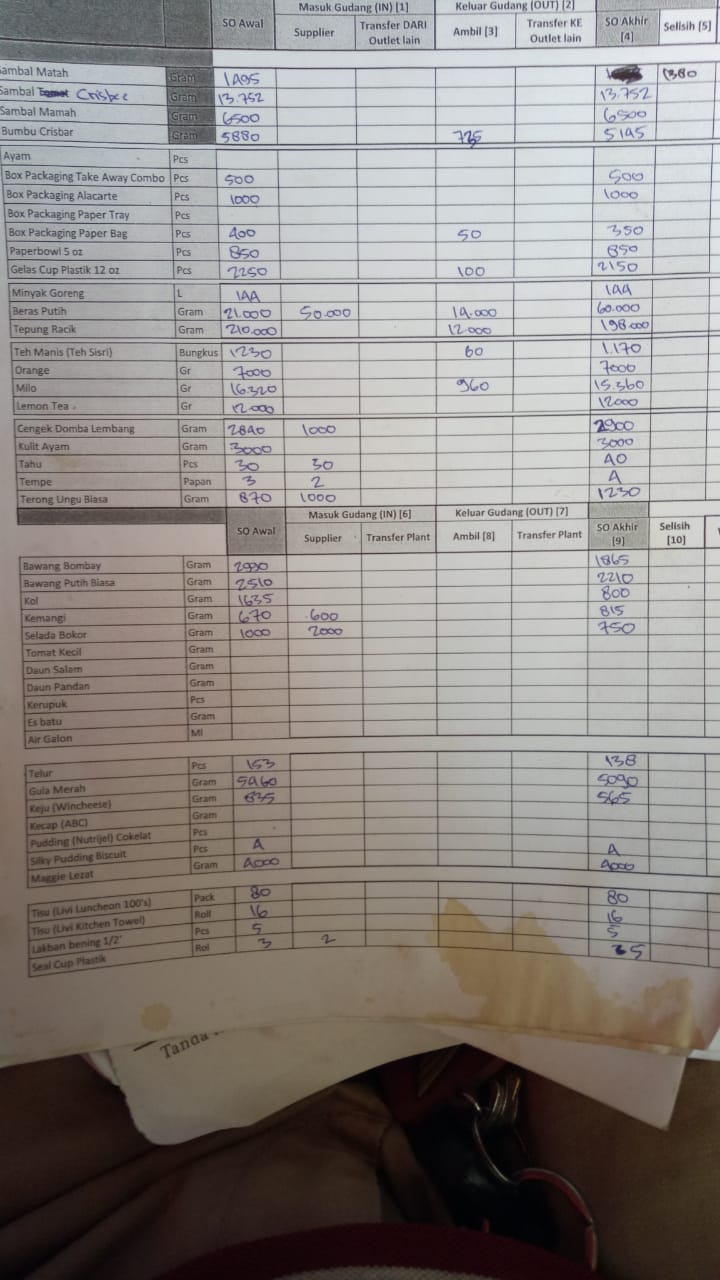 SO Awal Masuk Gudang (IN) [1] Keluar Gudang (OUT) [2] SO Akhir [4] Selisih [5]
Supplier Transfer DARI Outlet lain Ambil [3] Transfer KE Outlet lain
Sambal Matah Gram 1495 1380
Sambal Crisbee Gram 13.752 13.752
Sambal Mamah Gram 6500 6500
Bumbu Crisbar Gram 5880 735 5145
Ayam Pcs
Box Packaging Take Away Combo Pcs 500 500
Box Packaging Alacarte Pcs 1000 1000
Box Packaging Paper Tray Pcs
Box Packaging Paper Bag Pcs 400 50 350
Paperbowl 5 oz Pcs 850 850
Gelas Cup Plastik 12 oz Pcs 2250 100 2150
Minyak Goreng L 144 144
Beras Putih Gram 21.000 50.000 19.000 60.000
Tepung Racik Gram 210.000 12.000 198.000
Teh Manis (Teh Sisri) Bungkus 1230 60 1.170
Orange Gr 7000 7000
Milo Gr 16.320 960 15.360
Lemon Tea Gr 12.000 12000
Cengek Domba Lembang Gram 2840 1000 2900
Kulit Ayam Gram 3000 3000
Tahu Pcs 30 30 40
Tempe Papan 3 2 4
Terong Ungu Biasa Gram 870 1000 1230
SO Awal Masuk Gudang (IN) [6] Keluar Gudang (OUT) [7] SO Akhir [9] Selisih [10]
Supplier Transfer Plant Ambil [8] Transfer Plant
Bawang Bombay Gram 1865
Bawang Putih Biasa Gram 2510 2210
Kol Gram 1635 800
Kemangi Gram 670 600 815
Selada Bokor Gram 1000 2000 750
Tomat Kecil Gram
Daun Salam Gram
Daun Pandan Gram
Kerupuk Pcs
Es batu Gram
Air Galon Ml
Telur Pcs 153 138
Gula Merah Gram 5460 5090
Keju (Wincheese) Gram 835 565
Kecap (ABC) Gram
Pudding (Nutrijel) Cokelat Pcs
Silky Pudding Biscuit Pcs 4 4
Maggie Lezat Gram 4000 4000
Tisu (Livi Luncheon 100's) Pack 80 80
Tisu (Livi Kitchen Towel) Roll 16 16
Lakban bening 1/2" Pcs 5 5
Seal Cup Plastik Rol 3 2 5
Tanda